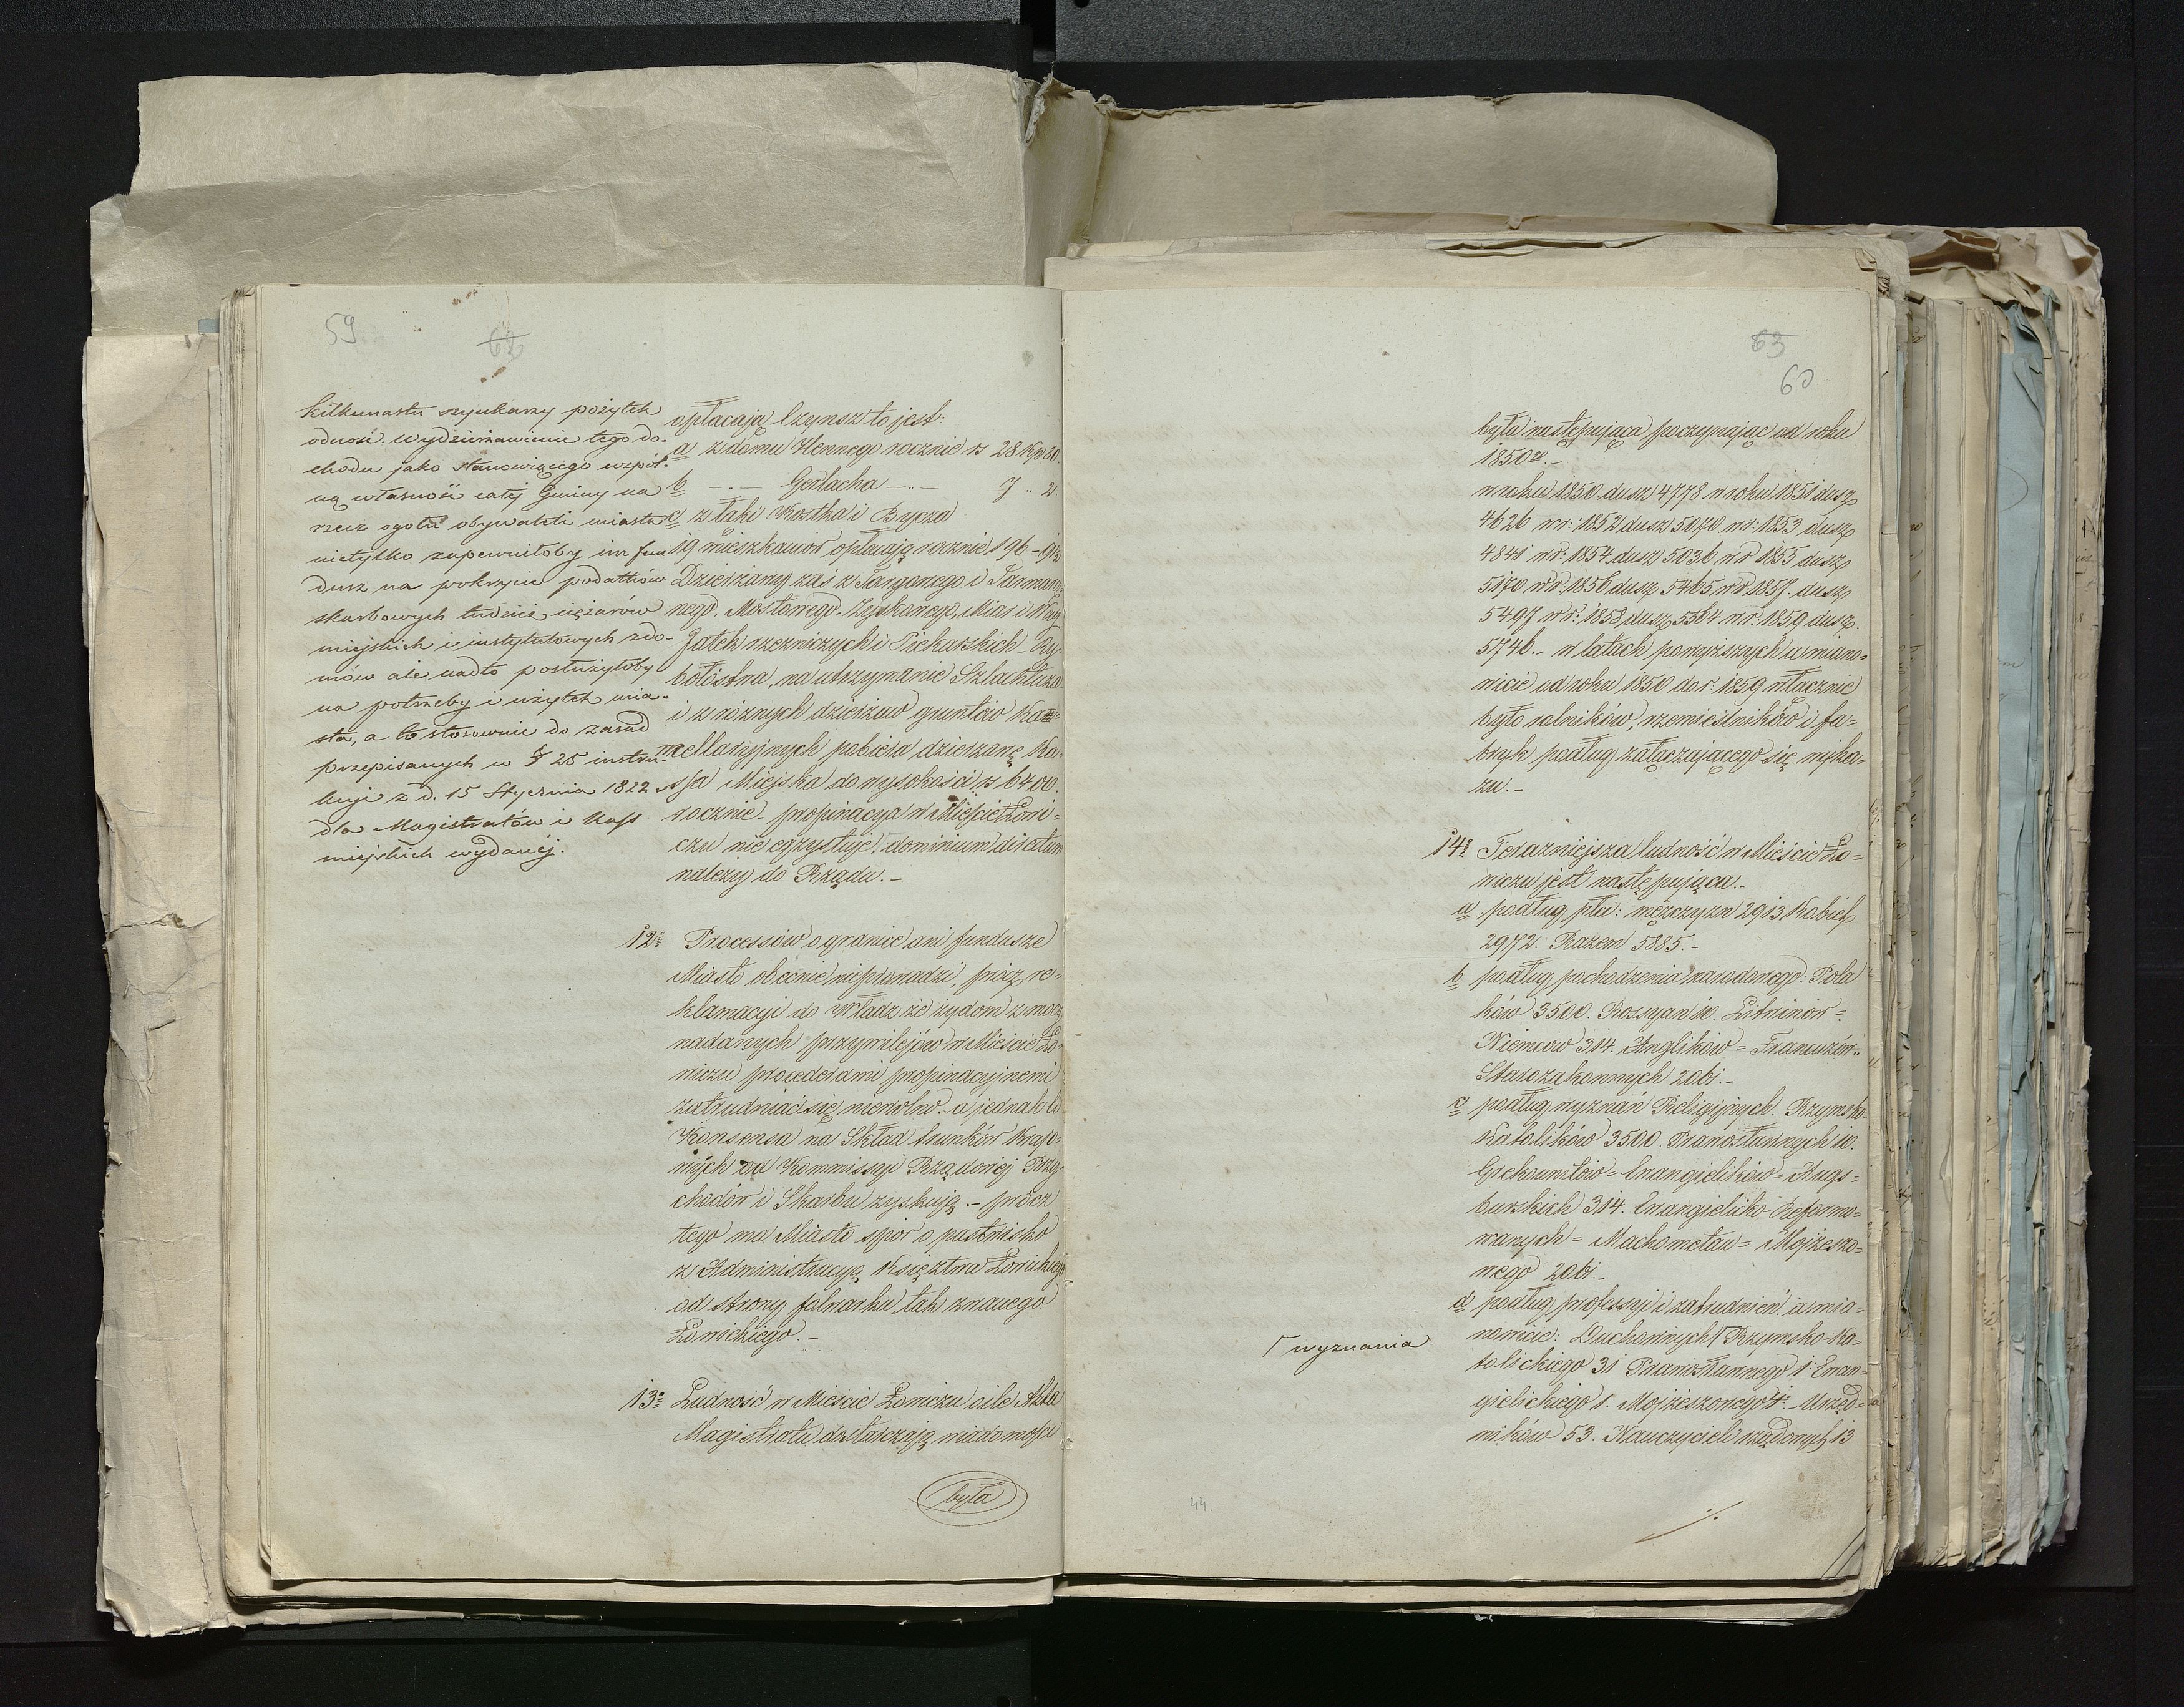 59
62
kilkunastu szynkarzy pożytek
odnosi. Wydzierżawienie tego do-
chodu jako stanowiącego wspól-
ną własność całej Gminy na
rzecz ogółu obywateli miasta
nietylko zapewniłoby im fun
dusz na pokrycie podatków
skarbowych tudzież ciężarów
miejskich i instytutowych z do-
mów ale nadto posłużyłoby
na potrzeby i użytek mia-
sta, a to stosownie do zasad
przepisanych w § 25 instru-
kcyi z d. 15 Stycznia 1822
dla Magistratów i Kass
miejskich wydanéj.
opłacają Czynsz to jest:
a z domu Hennego rocznie rs 28 kop 80
b -..- Gerlacha -..- 7 .. 2.
c z łąki Kostka i Bycza
19 mieszkańców opłacają rocznie 196 - 91½
Dzierżawy zaś z Targowego i Jarmarcz
nego, Mostowego, Miar i Wag
Jatek rzeźniczych i Piekarskich Ry-
bołóstwa, na utrzymanie Szlachtuza
i z różnych dzierżaw gruntów Ka-
mellaryjnych pobiera dzierżawę Ka-
ssa Miejska do wysokości rs 6400.
rocznie - propinacya w Mieście Łowi-
czu nie egzystuje, dominium directum
należy do Rządu.-
12o Processów o granice ani fundusze
Miasto obecnie nieprowadzi, prócz re-
klamacyi do Władz że żydom z mocy
nadanych przywilejów w Mieście Ło-
wiczu procederami propinacyjnemi
zatrudniać się niewolno, a jednak to
Konsensa na Skład trunków krajo-
wych od Kommissyi Rządowéj Przy-
chodów i Skarbu zyskują.- prócz
tego ma Miasto spór o pastwisko
z Administracyą Księztwa Łowickiego
od strony folwarku tak zwanego
Łowickiego.-
13o Ludność w Mieście Łowiczu o ile Akta
Magistratu dostarczają wiadomości
była
63
60
była następująca poczynając od roku
1850r.-
w roku 1850 dusz 4778 w roku 1851 dusz
4626 w r: 1852 dusz 5070 w r: 1853 dusz
4841 w r: 1854 dusz 5036 w r 1855 dusz
5170 w r: 1856 dusz 5465 w r 1857. dusz
5497 w r: 1858 dusz 5564 w r: 1859 dusz.
5746.- w latach powyższych a miano-
wicie od roku 1850 do r: 1859 włącznie
było rolników, rzemieślników i fa-
bryk podług załączającego się wyka-
zu.-
14o Teraźniejsza ludność w Mieście Ło-
wiczu jest następująca.-
a podług płci: mężczyzn 2913 Kobiet
2972. Razem 5885.-
b podług pochodzenia narodowego: Pola
ków 3500. Rossyan 10. Litwinów =
Niemców 314. Anglików = Francuzów..
Starozakonnych 2061.-
c podług wyznań Religijnych. Rzymsko
Katolików 3500. Prawosławnych 10.
Grekounitów = Ewangielików = Augs-
burskich 314. Ewangielicko Reformo-
wanych = Machometan = Mojżeszo-
wego 2061.-
d podług professyi i zatrudnień, a mia-
nowicie: Duchownych Γ Rzymsko Ka-
tolickiego 31 Prawosławnego 1. Ewan-
gielickiego 1. Mojżeszowego 4.- Urzęd-
ników 53. Nauczycieli rządowych 13
Γ wyznania
44.